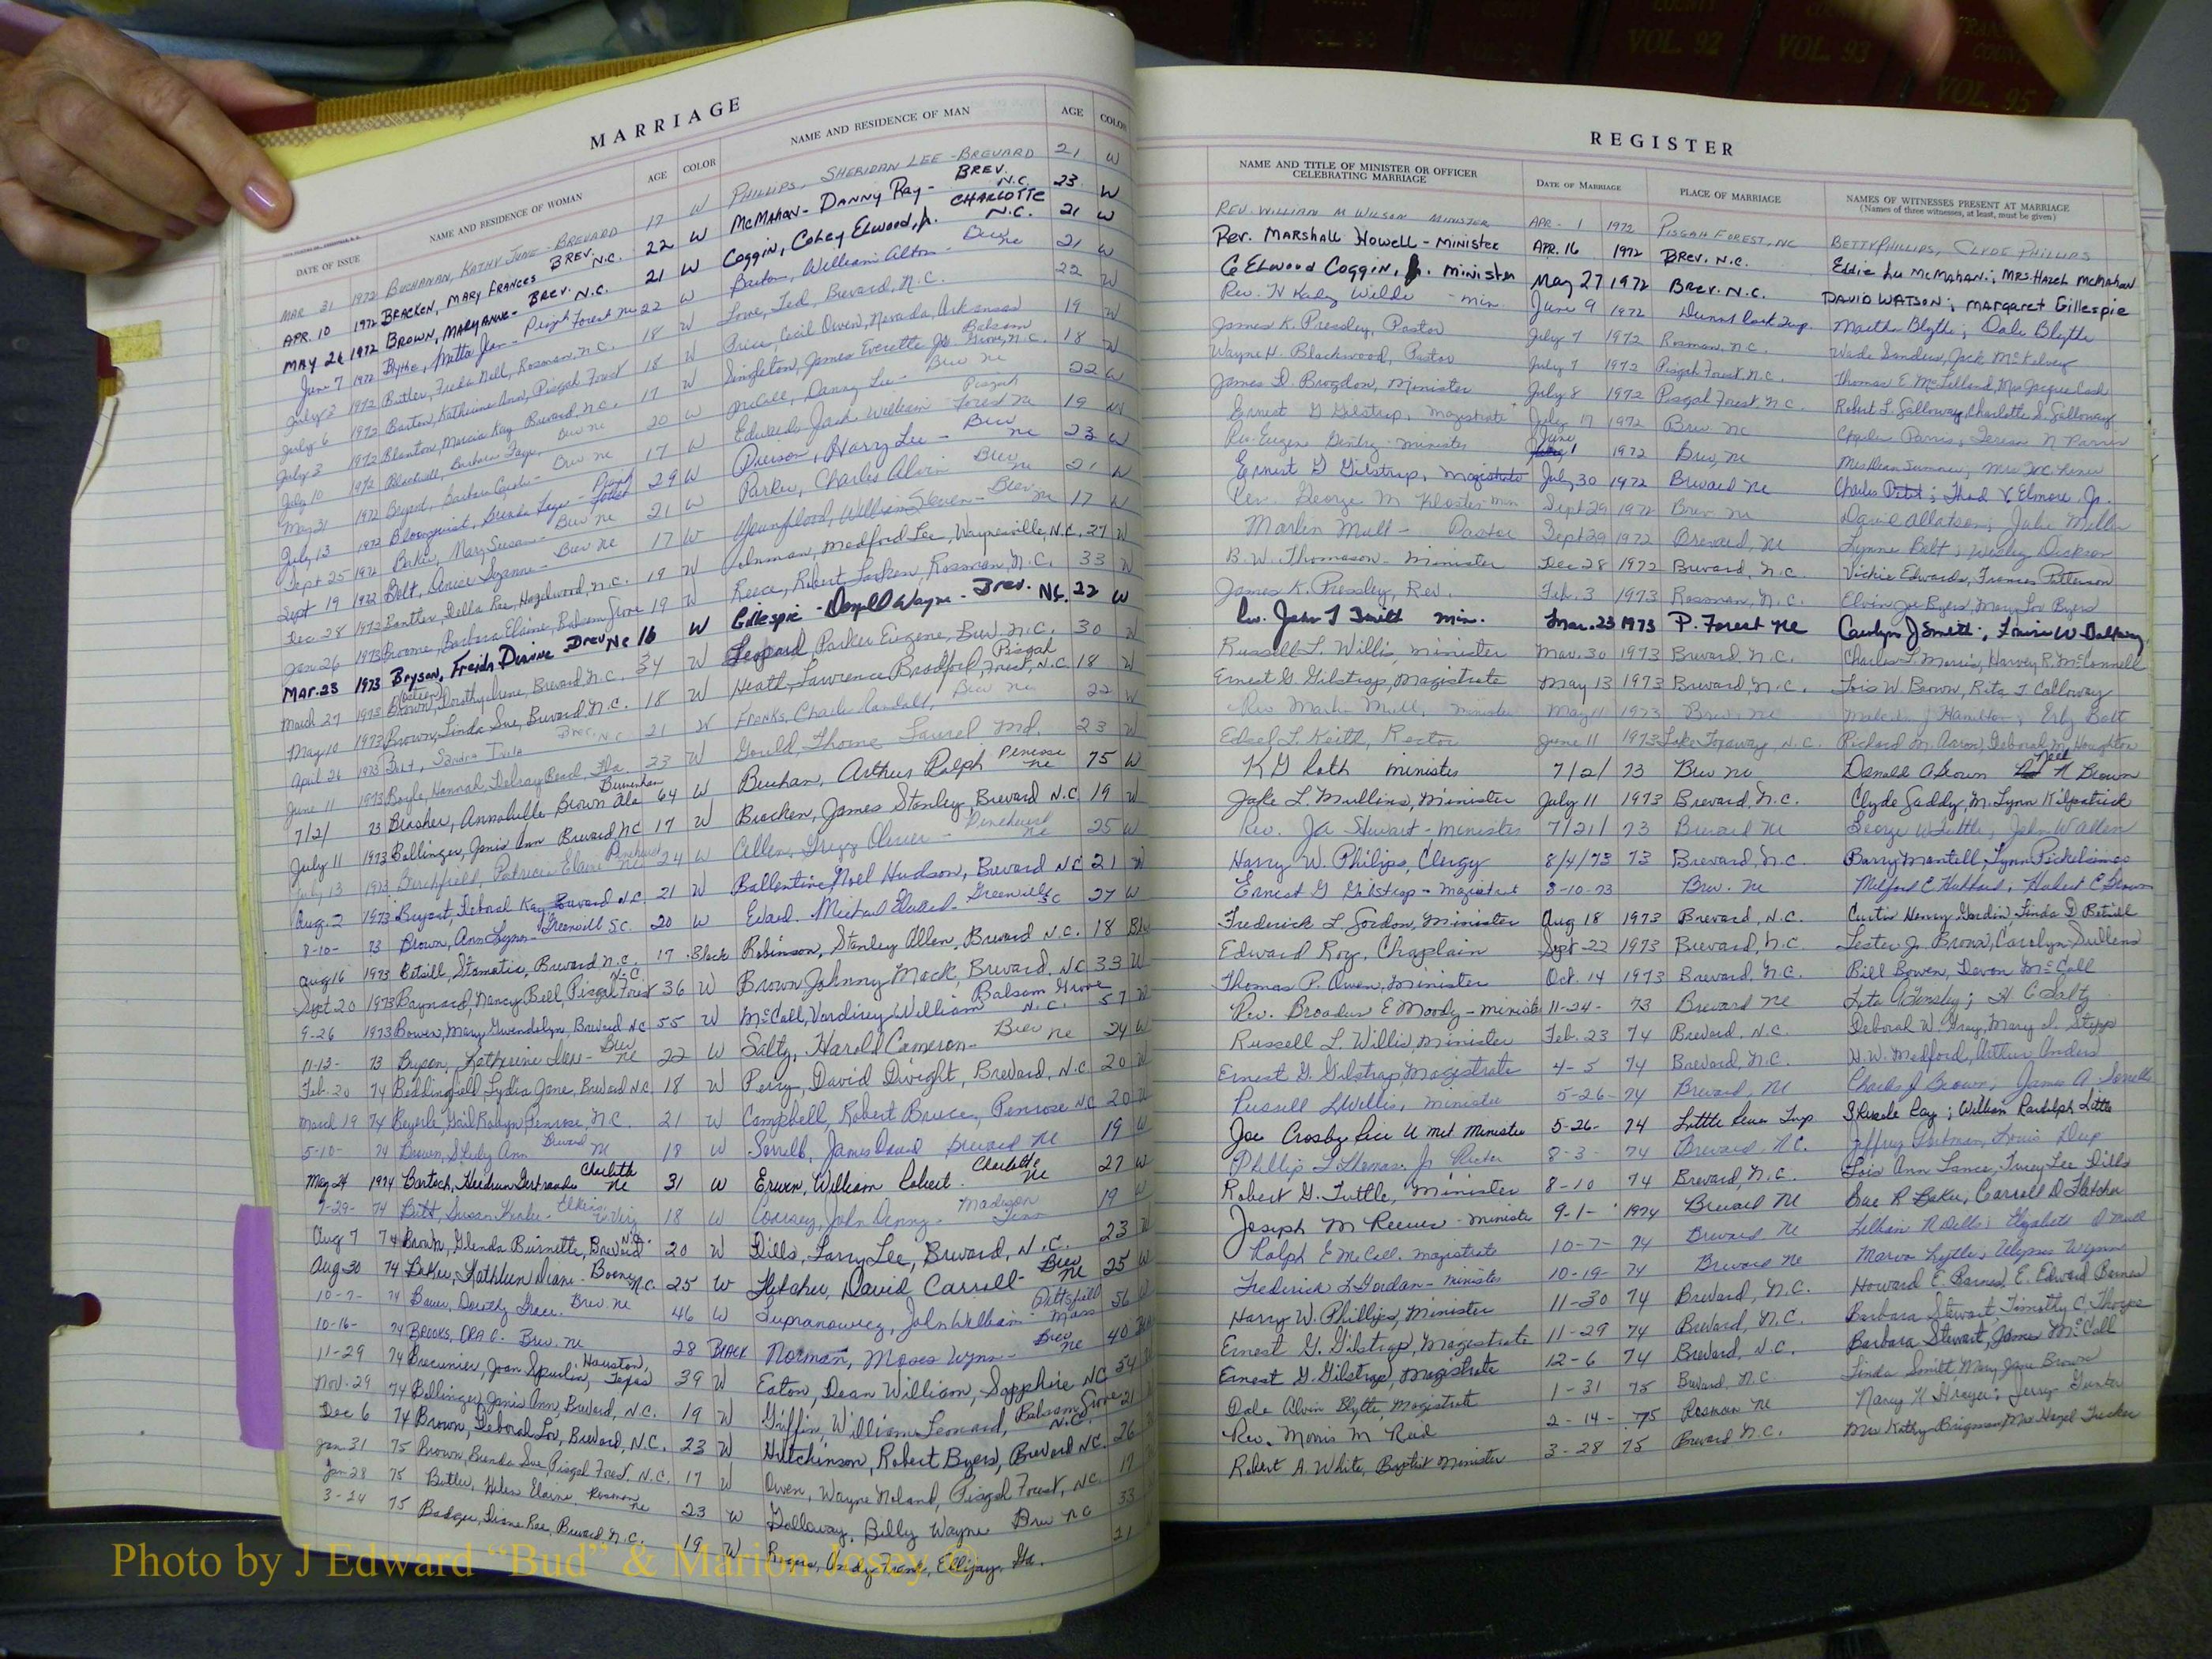 COUNTY
VOL. 90
VOL. 92
VOL. 93
VOL. 95
MARRIAGE
DATE OF ISSUE NAME AND RESIDENCE OF WOMAN AGE COLOR NAME AND RESIDENCE OF MAN AGE COLOR
MAR 31 1972 BUCHANAN, KATHY JUNE - BREVARD 17 W PHILLIPS, SHERIDAN LEE - BREVARD 21 W
APR. 10 1972 BRACKEN, MARY FRANCES BREV. N.C. 22 W McMahan - DANNY Ray - BREV. N.C. 23 W
MAY 26 1972 BROWN, MARY ANNE - BREV. N.C. 21 W Coggin, Coley Elwood, Jr. CHARLOTTE N.C. 21 W
June 7 1972 Blythe, Metta Jean - Pisgah Forest NC 22 W Barton, William Alton - Brev NC 21 W
July 3 1972 Butler, Freda Nell, Rosman, N.C. 18 W Love, Ted, Brevard, N.C. 22 W
July 6 1972 Barton, Katherine Ann, Pisgah Forest 18 W Price, Cecil Owen, Nevada, Arkansas 19 W
July 3 1972 Blanton, Marcia Kay Brevard, N.C. 17 W Singleton, James Everette Jr. Balsam Grove, N.C. 18 W
July 10 1972 Blackwell, Barbara Faye, Brev NC 20 W McCall, Danny Lee - Brev NC 22 W
May 31 1972 Bryant, Barbara - Brev NC 17 W Edwards Jack William Pisgah Forest NC 19 W
July 13 1972 Bloomquist, Brenda Faye - Pisgah Forest 29 W Pierson, Harry Lee - Brev NC 23 W
Sept 25 1972 Baker, Mary Susan - Brev NC 21 W Parker, Charles Alvin Brev NC 21 W
Sept 19 1972 Belt, Denise Suzanne - Brev NC 17 W Youngblood, William Steven - Brev NC 17 W
Dec 28 1972 Banther, Della Rae, Hazelwood, N.C. 19 W Inman, Medford Lee, Waynesville, N.C. 27 W
Jan 26 1973 Broome, Barbara Elaine, Balsam Grove 19 W Reece, Robert Larken, Rosman, N.C. 33 W
MAR. 23 1973 Bryson, Freida Dianne Brev NC 16 W Gillespie - Donald Wayne - Brev. NC. 22 W
March 27 1973 Brown, Dorothy Irene, Brevard N.C. 34 W Leopard, Parker Eugene, Brev N.C. 30 W
May 10 1973 Brown, Linda Sue, Brevard, N.C. 18 W Heath, Lawrence Bradford, Pisgah Forest, N.C. 18 W
April 26 1973 Belt, Sandra Brev. N.C 21 W Franks, Charles Randall, Brev NC 22 W
June 11 1973 Boyle, Hannah, Delray Beach, Fla. 23 W Gould Thorne Laurel Md. 23 W
7/2/ 73 Brasher, Annabelle Brown Birmingham Ala 64 W Buchan, Arthur Ralph Penrose NC 75 W
July 11 1973 Ballinger, Janis Ann Brevard NC 17 W Bracken, James Stanley Brevard N.C. 19 W
July 13 1973 Burchfield, Patricia Elaine Pinehurst NC 24 W Allen, Gregg Oliver - Pinehurst NC 25 W
Aug. 2 1973 Bryant, Deborah Kay Brevard N.C. 21 W Ballentine, Noel Hudson, Brevard N.C. 21 W
8-10- 73 Brown, Ann Lynn - Greenville S.C. 20 W Edward Michael Greenville SC 27 W
Aug 16 1973 Betsill, Stamatia, Brevard N.C. 17 Black Robinson, Stanley Allen, Brevard N.C. 18
Sept. 20 1973 Baynard, Nancy Bell, Pisgah Forest N.C. 36 W Brown Johnny Mack, Brevard, N.C. 33 W
9-26 1973 Bowen, Mary Gwendolyn Brevard NC 55 W McCall, Vardirey William Balsam Grove N.C. 57 W
11-13- 73 Bryson, Katherine - Brev NC 22 W Saltz, Harold Cameron - Brev NC 24 W
Feb. 20 74 Beddingfield, Lydia Jane, Brevard N.C. 18 W Perry, David Dwight, Brevard, N.C. 20 W
March 19 74 Beyerle, Gail Robyn, Penrose, N.C. 21 W Campbell, Robert Bruce, Penrose NC 20 W
5-10- 74 Brown, Shelly Ann Brevard NC 18 W Sorrells, James David Brevard NC 19 W
May 24 1974 Bartsch, Heidrun Gertraude Charlotte NC 31 W Erwin, William Robert Charlotte NC 27 W
7-29- 74 Bitt, Susan - Elkins W Virg 18 W Coursey, John Denny - Madison Tenn 19 W
Aug 7 74 Brown, Glenda Burnette, Brevard N.C. 20 W Dills, Larry Lee, Brevard, N.C. 23 W
Aug 30 74 Baker, Kathleen Diane - Boone N.C. 25 W Fletcher, David Carroll - Brev NC 25 W
10-7- 74 Bauer, Dorothy Grace. Brev. NC 46 W Supranowicz, John William - Pittsfield Mass 56 W
10-16- 74 BROOKS, ORA O. Brev. NC 28 BLACK Norman, Moses Wynn - Brev NC 40
11-29 74 Brecunier, Joan Spurlin, Houston, Texas 39 W Eaton, Dean William, Sapphire NC 54
Nov. 29 74 Ballinger, Janis Ann, Brevard, N.C. 19 W Griffin, William Leonard, Balsam Grove N.C. 21
Dec 6 74 Brown, Deborah Lou, Brevard, N.C. 23 W Hutchinson, Robert Byers, Brevard N.C. 26
Jan 31 75 Brown, Brenda Sue, Pisgah Forest, N.C. 17 W Owen, Wayne Noland, Pisgah Forest, N.C. 17
Jan 28 75 Butler, Helen Elaine, Rosman NC 23 W Galloway, Billy Wayne Brev NC 33
3-24 75 Badger, Diane Rae, Brevard N.C. 19 W Rogers, Frank, Ellijay, Ga. 21
REGISTER
NAME AND TITLE OF MINISTER OR OFFICER CELEBRATING MARRIAGE DATE OF MARRIAGE PLACE OF MARRIAGE NAMES OF WITNESSES PRESENT AT MARRIAGE
(Names of three witnesses, at least, must be given)
REV. WILLIAM M WILSON MINISTER APR. 1 1972 PISGAH FOREST, NC BETTY PHILLIPS, CLYDE PHILLIPS
Rev. MARSHALL Howell - Minister APR. 16 1972 BREV. N.C. Eddie Lee McMahan; MRS HAZEL McMAHAN
C ELwood Coggin, Jr. minister May 27 1972 BREV. N.C. DAVID WATSON; MARGARET Gillespie
June 9 1972 Martha Blythe; Dale Blythe
James K. Pressley, Pastor July 7 1972 Rosman, N.C. Wade Sanders, Jack McKelvey
Wayne H. Blackwood, Pastor July 7 1972 Pisgah Forest, N.C. Thomas E. McLelland, Mrs Jacque Cash
James D. Brogdon, Minister July 8 1972 Pisgah Forest, N.C. Robert L. Galloway, Charlotte S. Galloway
Ernest G Gilstrap, Magistrate July 17 1972 Brev. NC
Rev. Eugene Gentry - minister June 1 1972 Brev, NC
Ernest G Gilstrap, Magistrate July 30 1972 Brevard NC Charles Petit; Thad V Elmore Jr.
Rev. George M Kloster - min Sept 29 1972 Brev. NC
Marlin Mull - Pastor Sept 29 1972 Brevard, NC Lynne Belt; Wesley Dickson
B. W. Thomason - minister Dec 28 1972 Brevard, N.C. Vickie Edwards, Frances Patterson
James K. Pressley, Rev. Feb. 3 1973 Rosman, N.C. Elvin Joe Byers, Mary Lou Byers
Rev. John T Smith min. Mar. 23 1973 P. Forest NC Carolyn J Smith;
Russell L. Willis, Minister Mar. 30 1973 Brevard, N.C. Charles L. Morris, Harvey R. McConnell
Ernest G. Gilstrap, Magistrate May 13 1973 Brevard, N.C. Lois W. Brown, Rita J Galloway
Rev Marlin Mull, minister May 11 1973 Brev. NC
Edsel L. Keith, Rector June 11 1973 Lake Toxaway, N.C. Richard M. Aaron, Deborah M. Houghton
K G Roth minister 7/2/ 73 Brev NC Donald A Brown
Jake L. Mullins, Minister July 11 1973 Brevard, N.C. Clyde Gaddy, M. Lynn Kilpatrick
Rev. Stewart - minister 7/21/ 73 Brevard NC George W Tuttle, John W Allen
Harry W. Philips, Clergy 8/4/73 73 Brevard, N.C. Barry Mantell, Lynn Pickelsimer
Ernest G Gilstrap - magistrate 8-10-73 Brev. NC Milford C Hubbard,
Frederick L. Gordon, Minister Aug 18 1973 Brevard, N.C. Curtis Henry Gardin, Linda D Betsill
Edward Roy, Chaplain Sept 22 1973 Brevard, N.C. Lester Jr. Brown, Carolyn Sullens
Thomas P. Owen, Minister Oct. 14 1973 Brevard, N.C. Bill Bowen, Devon McCall
Rev. Broadus E Moody - minister 11-24- 73 Brevard NC
Russell L. Willis, Minister Feb. 23 74 Brevard, N.C. Deborah W. Gray, Mary S. Stepp
Ernest G. Gilstrap, Magistrate 4-5 74 Brevard, N.C. N. W. Medford, Arthur Anders
Russell L Willis, minister 5-26-74 Brevard, NC Charles J Brown, James A Sorrells
Joe Crosby Rice U Met Minister 5-26- 74 Little River Twp William Randolph Little
Phillip L Thomas, Jr Rector 8-3- 74 Brevard, N.C.
Robert G. Tuttle, Minister 8-10 74 Brevard N.C. Lois Ann Lance, Tracy Lee Dills
Joseph M Reeves - minister 9-1- 1974 Brevard NC Sue R Baker, Carroll D Fletcher
Ralph E McCall. magistrate 10-7- 74 Brevard NC
Frederick L Gordan - minister 10-19- 74 Brevard NC
Harry W. Phillips, Minister 11-30 74 Brevard, N.C. Howard E. Barnes, E. Edward Barnes
Ernest G. Gilstrap, Magistrate 11-29 74 Brevard, N.C. Barbara Stewart, Timothy C. Thorpe
Ernest G. Gilstrap, Magistrate 12-6 74 Brevard, N.C. Barbara Stewart, James McCall
Dale Alvin Blythe, Magistrate 1-31 75 Brevard, N.C Linda Smith, Mary Jane Brown
Rev. Morris M Reid 2-14- 75 Rosman NC
Robert A. White, Baptist Minister 3-28 75 Brevard N.C. Mrs Kathy Brigman, Mrs Hazel
Photo by J Edward “Bud” & Marion Josey ©